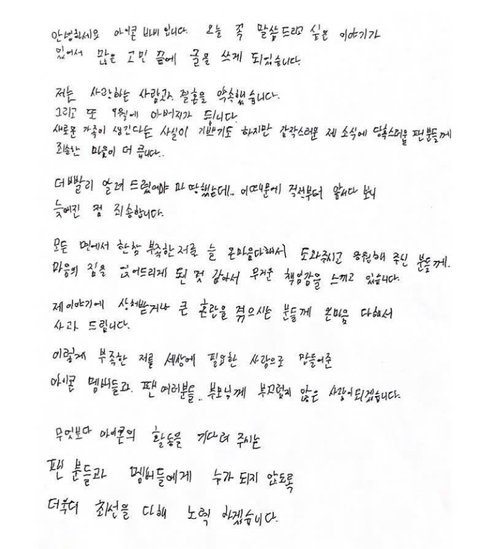 안녕하세요 아이콘 바비입니다. 오늘 꼭 말씀드리고 싶은 이야기가
있어서 많은 고민 끝에 글을 쓰게 되었습니다.
저는 사랑하는 사람과 결혼을 약속했습니다.
그리고 또 9월에 아버지가 됩니다.
새로운 가족이 생긴다는 사실이 기쁘기도 하지만 갑작스러운 제 소식에 당혹스러울 팬분들께
죄송한 마음이 더 큽니다..
더 빨리 알려 드렸어야 마땅했는데.. 이 때문에 걱정부터 앞서다 보니
늦어진 점 죄송합니다.
모든 면에서 한참 부족한 저를 늘 온 마음 다해서 도와주시고 응원해 주신 분들께.
마음의 짐을 얹어드리게 된 것 같아서 무거운 책임감을 느끼고 있습니다.
제 이야기에 상처받거나 큰 혼란을 겪으시는 분들께 온 마음 다해서
사과 드립니다.
이렇게 부족한 저를 세상에 필요한 사람으로 만들어준
아이콘 멤버들과. 팬 여러분들.. 부모님께 부끄럽지 않은 사람이 되겠습니다.
무엇보다 아이콘의 활동을 기다려 주시는
팬 분들과 멤버들에게 누가 되지 않도록
더욱더 최선을 다해 노력 하겠습니다.